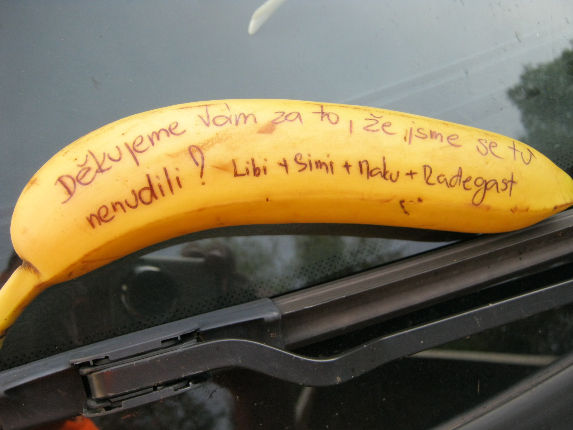 Děkujeme Vám za to, že jsme se tu
nenudili! Libi + Simi + Maku + Radegast